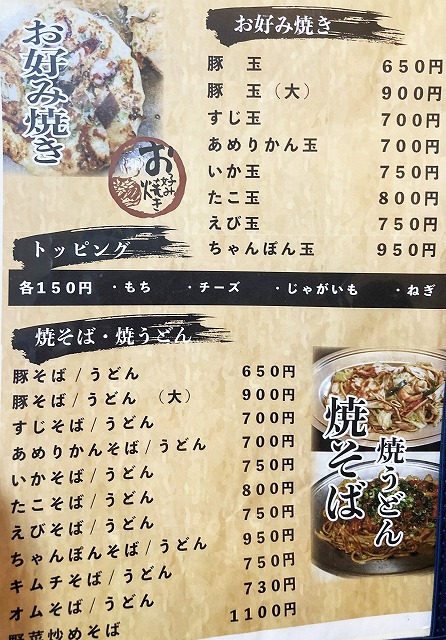 お好み焼き
お好み焼き
豚　玉 650円
豚　玉（大） 900円
すじ玉 700円
あめりかん玉 700円
いか玉 750円
たこ玉 800円
えび玉 750円
ちゃんぽん玉 950円
お好み焼き
トッピング
各150円 ・もち ・チーズ ・じゃがいも ・ねぎ
焼そば・焼うどん
豚そば/うどん 650円
豚そば/うどん （大） 900円
すじそば/うどん 700円
あめりかんそば/うどん 700円
いかそば/うどん 750円
たこそば/うどん 800円
えびそば/うどん 750円
ちゃんぽんそば/うどん 950円
キムチそば/うどん 750円
オムそば/うどん 730円
野菜炒めそば 1100円
焼そば
焼うどん